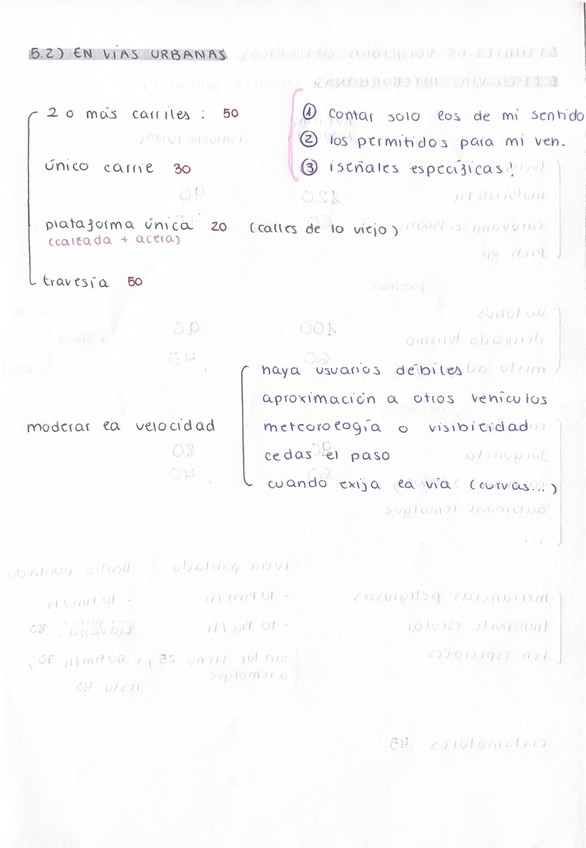 5.2) EN VÍAS URBANAS
2 o más carriles : 50
① contar solo los de mi sentido
② los permitidos para mi veh.
③ ¡señales específicas!
único carril 30
plataforma única 20 (calles de lo viejo)
(calzada + acera)
travesía 50
moderar la velocidad
haya usuarios débiles
aproximación a otros vehículos
meteorología o visibilidad
cedas el paso
cuando exija la vía (curvas...)